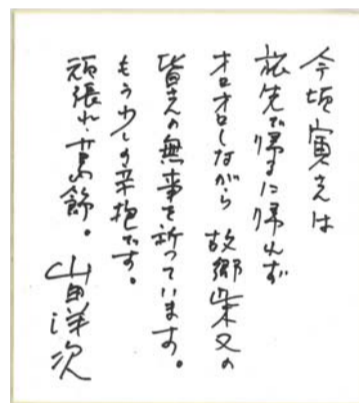 今頃寅さんは
旅先で帰るに帰れず
オロオロしながら故郷柴又の
皆さんの無事を祈っています。
もう少しの辛抱です。
頑張れ、葛飾。
山田洋次